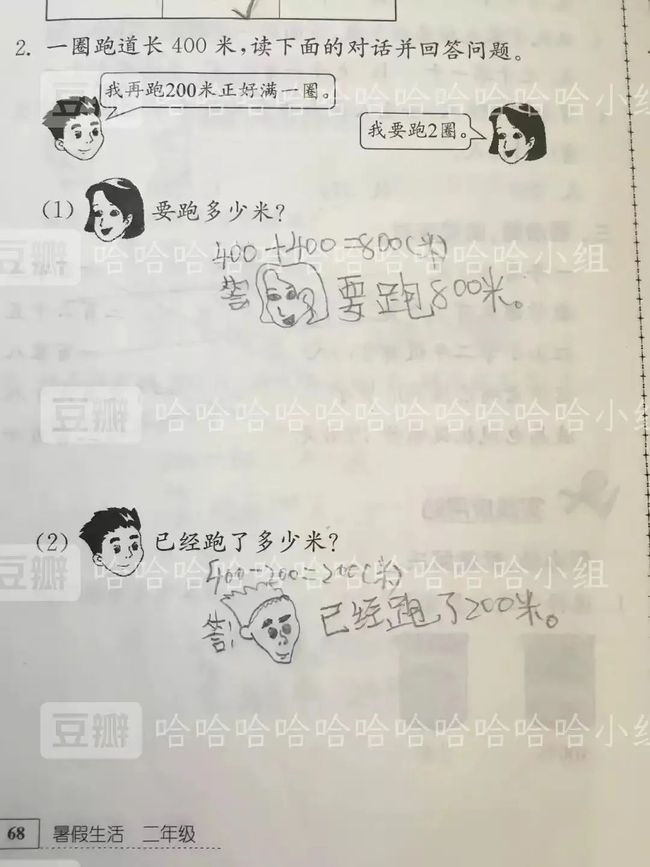 2. 一圈跑道长400米，读下面的对话并回答问题。
我再跑200米正好满一圈。
我要跑2圈。
(1) 要跑多少米？
400+400=800(米)
答: 要跑800米。
(2) 已经跑了多少米？
400-200=200(米)
答: 已经跑了200米。
68 暑假生活 二年级
豆瓣 哈哈哈哈哈哈哈哈哈小组
豆瓣 哈哈哈哈哈哈哈哈哈小组
豆瓣 哈哈哈哈哈哈哈哈哈小组
豆瓣 哈哈哈哈哈哈哈哈哈小组
豆瓣 哈哈哈哈哈哈哈哈哈小组